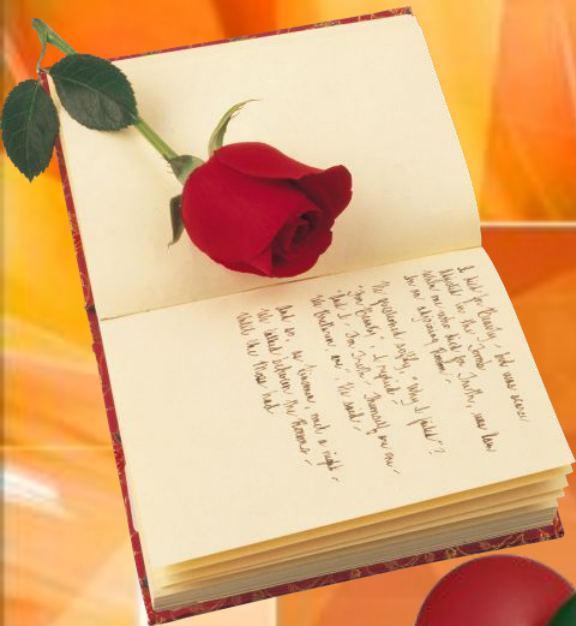 I died for Beauty - but was scarce
Adjusted in the Tomb
When one who died for Truth, was lain
In an adjoining Room -
He questioned softly, "Why I failed"?
"For Beauty" - I replied -
"And I - For Truth - Themself are One -
We Brethren, are - He said -
And so, as Kinsmen, met a night -
We talked between the Rooms -
Until the Moss had